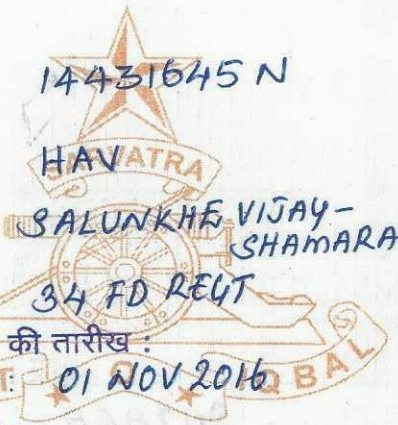 14431645 N
HAV
SARVATRA
SALUNKHE VIJAY-
SHAMARA
34 FD REGT
की तारीख :
: 01 NOV 2016
IQBAL